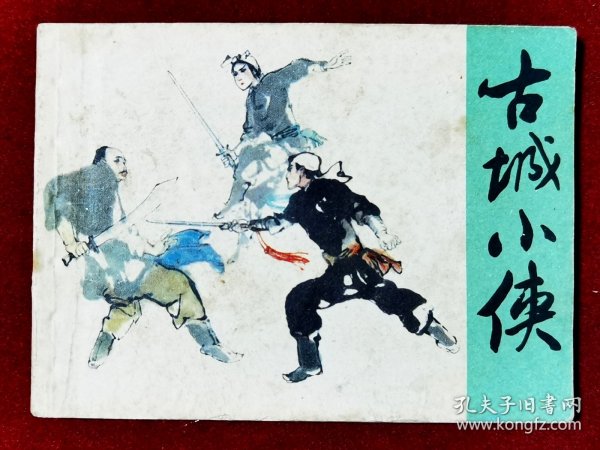 古城小侠
孔夫子旧书网
www.kongfz.com